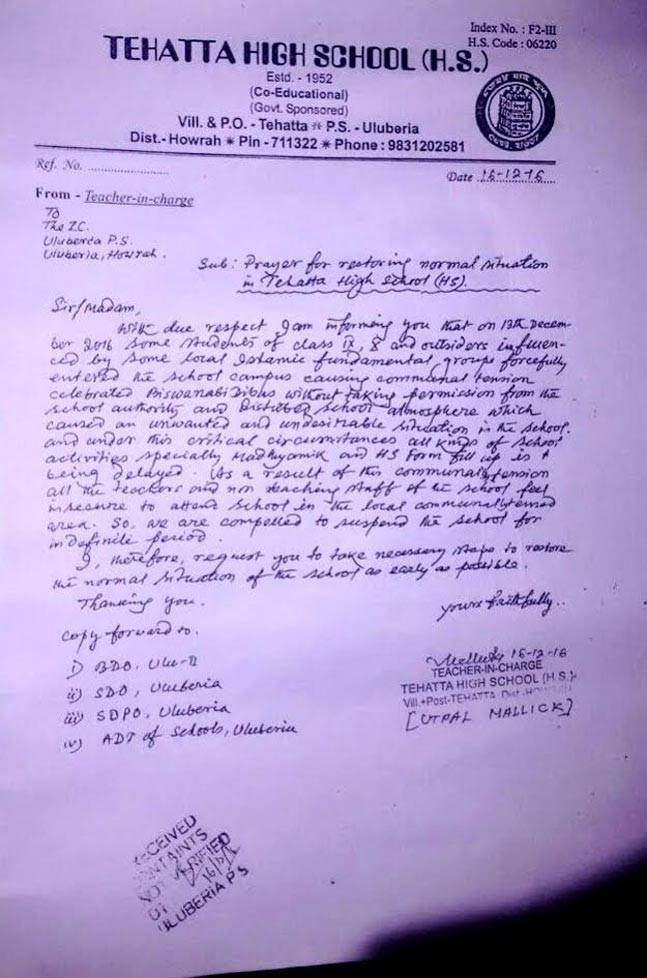 Index No. : F2-III
H.S. Code : 06220
TEHATTA HIGH SCHOOL (H.S.)
Estd. - 1952
(Co-Educational)
(Govt. Sponsored)
Vill. & P.O. - Tehatta * P.S. - Uluberia
Dist.- Howrah * Pin - 711322 * Phone : 9831202581
Ref. No. ........................
Date 16-12-16
From - Teacher-in-charge
To
The I.C.
Uluberia P.S.
Uluberia, Howrah.
Sub: Prayer for restoring normal situation
in Tehatta High School (HS).
Sir/Madam,
With due respect I am informing you that on 13th Decem-
ber 2016 some students of class IX, X and outsiders influen-
ced by some local Islamic fundamental groups forcefully
entered the school campus causing communal tension
celebrated Biswanabi Dibas without taking permission from the
school authority and Distubed school atmosphere which
caused an unwanted and undesirable situation in the school.
and under this critical circumstances all kinds of school
activities specially Madhyamik and HS Form fill up is
being delayed. As a result of this communal tension
all the teachers and non teaching staff of the school feel
insecure to attend school in the local communally tensed
area. So, we are compelled to suspend the school for
indefinite period.
I, therefore, request you to take necessary steps to restore
the normal situation of the school as early as possible.
Thanking you.
yours faithfully..
Copy forward to.
i) BDO, Ulu-II
ii) SDO, Uluberia
iii) SDPO, Uluberia
iv) ADI of Schools, Uluberia
Mallick 16-12-16
TEACHER-IN-CHARGE
TEHATTA HIGH SCHOOL (H.S.)
Vill.+Post-TEHATTA, Dist.-HOWRAH
[UTPAL MALLICK]
RECEIVED
CONTAINTS
NOT VERIFIED
ULUBERIA P.S